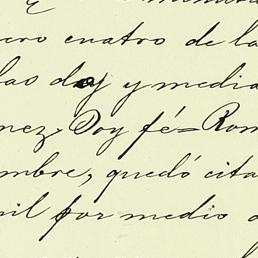 ero cuatro de la
las doy y media
nez Doy fé = Rom
mbre, quedó cita
il por medio